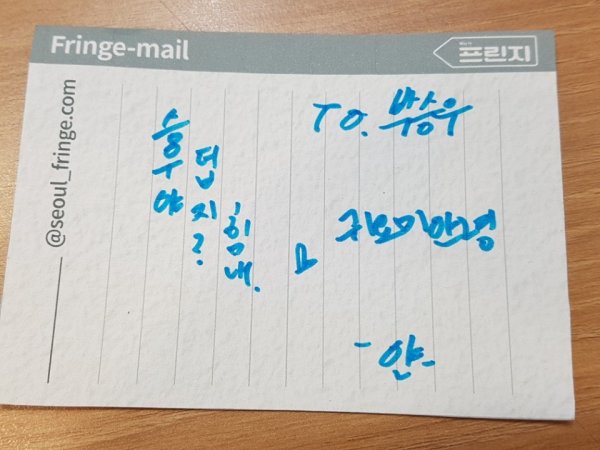 Fringe-mail
프린지
@seoul_fringe.com
TO. 박승우
승우야
덥지?
힘내.
귀요미안녕
-얀-